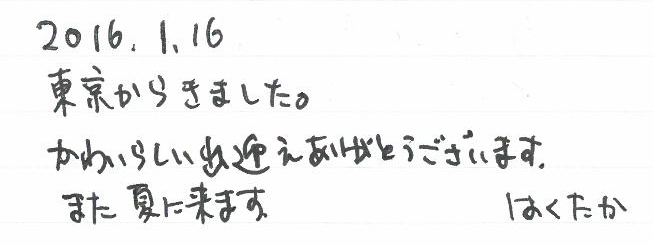 2016.1.16
東京からきました。
かわいらしい出迎えありがとうございます。
また夏に来ます。
はくたか